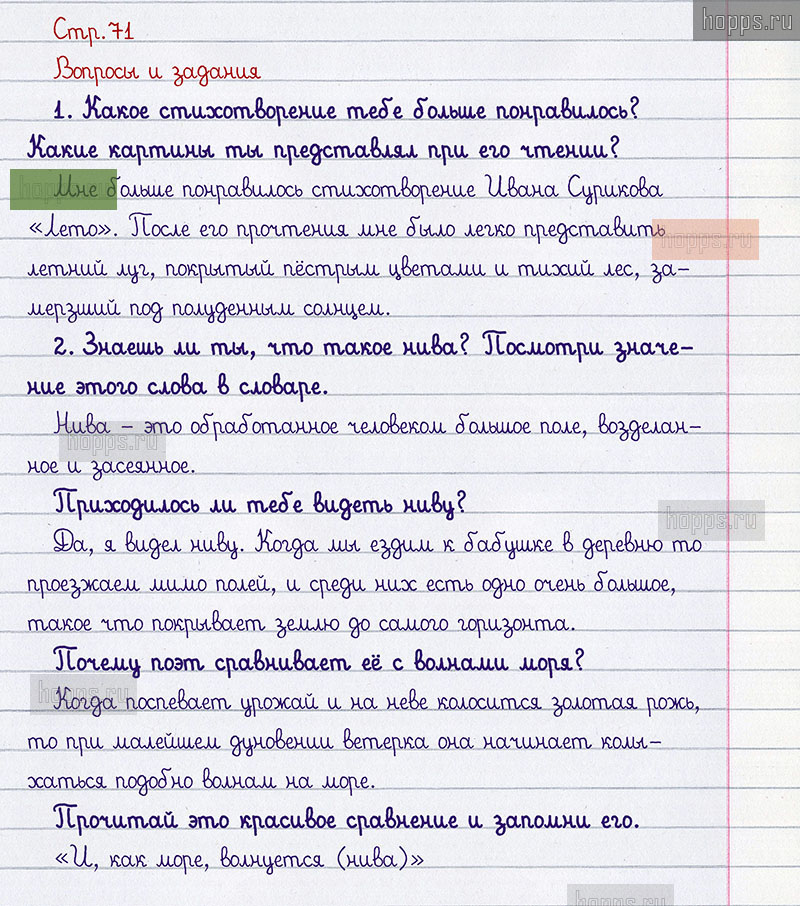 hopps.ru
Стр. 71
Вопросы и задания
1. Какое стихотворение тебе больше понравилось?
Какие картины ты представлял при его чтении?
hopps.ru
Мне больше понравилось стихотворение Ивана Сурикова
«Лето». После его прочтения мне было легко представить
hopps.ru
летний луг, покрытый пёстрым цветами и тихий лес, за-
мерзший под полуденным солнцем.
2. Знаешь ли ты, что такое нива? Посмотри значе-
ние этого слова в словаре.
Нива – это обработанное человеком большое поле, возделан-
hopps.ru
ное и засеянное.
Приходилось ли тебе видеть ниву?
hopps.ru
Да, я видел ниву. Когда мы ездим к бабушке в деревню то
проезжаем мимо полей, и среди них есть одно очень большое,
такое что покрывает землю до самого горизонта.
Почему поэт сравнивает её с волнами моря?
hopps.ru
Когда поспевает урожай и на неве колосится золотая рожь,
то при малейшем дуновении ветерка она начинает колы-
хаться подобно волнам на море.
Прочитай это красивое сравнение и запомни его.
«И, как море, волнуется (нива)»
hopps.ru